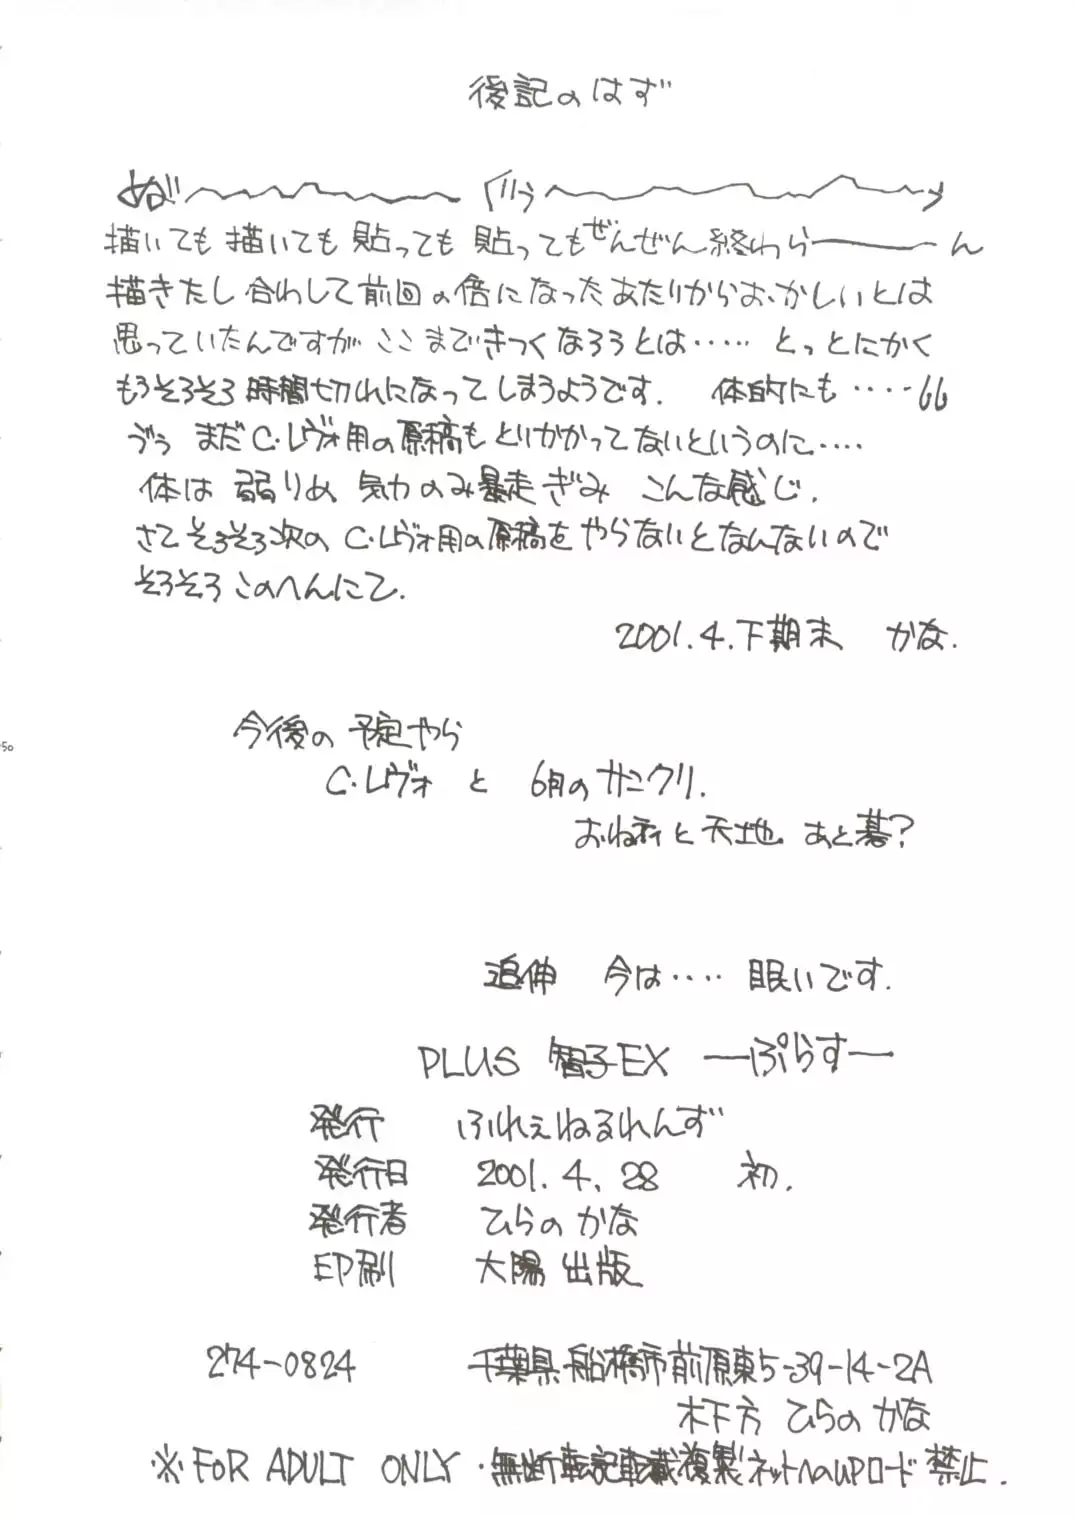 後記のはず
ぬが〜〜〜 ぐはう〜〜〜ッ
描いても描いても 貼っても 貼ってもぜんぜん終わら―――ん
描きたし合わして前回の倍になったあたりからおかしいとは
思っていたんですが ここまできつくなろうとは‥‥‥ とっとにかく
もうそろそろ時間切れになってしまうようです. 体的にも‥‥
づぅ まだC.レヴォ用の原稿もとりかかってないというのに‥‥
体は 弱りめ 気力のみ暴走ぎみ こんな感じ.
さてそろそろ次の C.レヴォ用の原稿をやらないとなんないので
そろそろこのへんにて.
2001.4.下期末 かな.
今後の予定やら
50
C.レヴォ と 6月のサンクリ.
おねティと天地 あと碁?
追伸 今は‥‥ 眠いです.
PLUS 智子EX ―ぷらす―
発行 ふれぇねるれんず
発行日 2001.4.28 初.
発行者 ひらのかな
印刷 大陽出版
274-0824 千葉県船橋市前原東5-39-14-2A
木下方 ひらのかな
※FOR ADULT ONLY・無断転記転載複製ネットへのUPロード禁止.